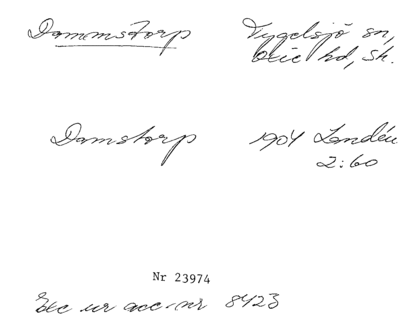 Dammstorp
Tygelsjö sn,
Oxie hd, Sk.
Damstorp
1904 Landén
2:60
Nr 23974
Exc ur acc.nr 8423